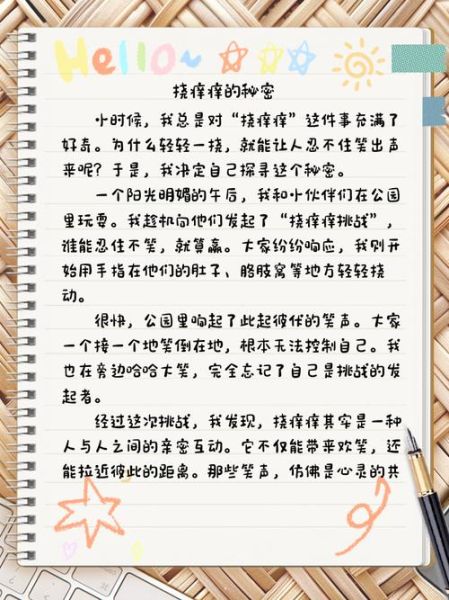 Hello~
挠痒痒的秘密
小时候，我总是对“挠痒痒”这件事充满了
好奇。为什么轻轻一挠，就能让人忍不住笑出声
来呢？于是，我决定自己探寻这个秘密。
一个阳光明媚的午后，我和小伙伴们在公园
里玩耍。我趁机向他们发起了“挠痒痒挑战”，
谁能忍住不笑，就算赢。大家纷纷响应，我则开
始用手指在他们的肚子、胳肢窝等地方轻轻挠
动。
很快，公园里响起了此起彼伏的笑声。大家
一个接一个地笑倒在地，根本无法控制自己。我
也在旁边哈哈大笑，完全忘记了自己是挑战的发
起者。
经过这次挑战，我发现，挠痒痒其实是一种
人与人之间的亲密互动。它不仅能带来欢笑，还
能拉近彼此的距离。那些笑声，仿佛是心灵的共